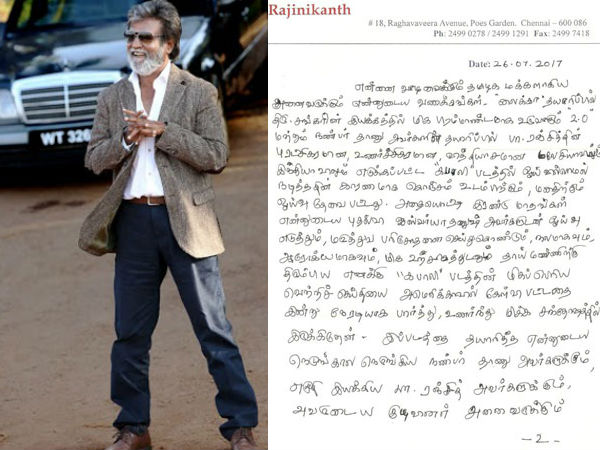 Rajinikanth
# 18, Raghavaveera Avenue, Poes Garden. Chennai – 600 086
Ph: 2499 0278 / 2499 1291 Fax: 2499 7418
Date: 26.07.2017
என்னை வாழவைக்கும் தமிழக மக்களாகிய
அனைவருக்கும் என்னுடைய வணக்கங்கள். லைக்கா தயாரிப்பில்
இயக்கத்தில் மிக பிரம்மாண்டமாக உருவாகும் 2.0
மற்றும் நண்பர் தாணு அவர்களின் தயாரிப்பில் பா. ரஞ்சித்தின்
புரட்சிகரமான, உணர்ச்சிகரமான, வித்தியாசமான
எடுக்கப்பட்ட "கபாலி" படத்தில் ஓய்வில்லாமல்
நடித்ததின் காரணமாக கொஞ்சம் உடம்பிற்கும், மனதிற்கும்
ஓய்வு தேவை பட்டது. அதையொட்டி இரண்டு மாதங்கள்
என்னுடைய புதல்வி ஐஸ்வர்யா தனுஷ் அவர்களுடன் ஓய்வு
எடுத்தும், மருத்துவ பரிசோதனை செய்துகொண்டும், நலமாகவும்,
ஆரோக்யமாகவும், மிக உற்சாகத்துடனும் தாய் மண்ணிற்கு
திரும்பிய எனக்கு "கபாலி" படத்தின் மிகப்பெரிய
வெற்றிச் செய்தியை அமெரிக்காவில் கேள்வி பட்டதை
இன்று நேரடியாக பார்த்து, உணர்ந்து மிக்க சந்தோஷத்தில்
இருக்கிறேன். இப்படத்தை தயாரித்த என்னுடைய
நெடுங்கால நெருங்கிய நண்பர் தாணு அவர்களுக்கும்,
எழுதி இயக்கிய பா. ரஞ்சித் அவர்களுக்கும்,
அவருடைய குழுவினர் அனைவருக்கும்
-2-
WT 326